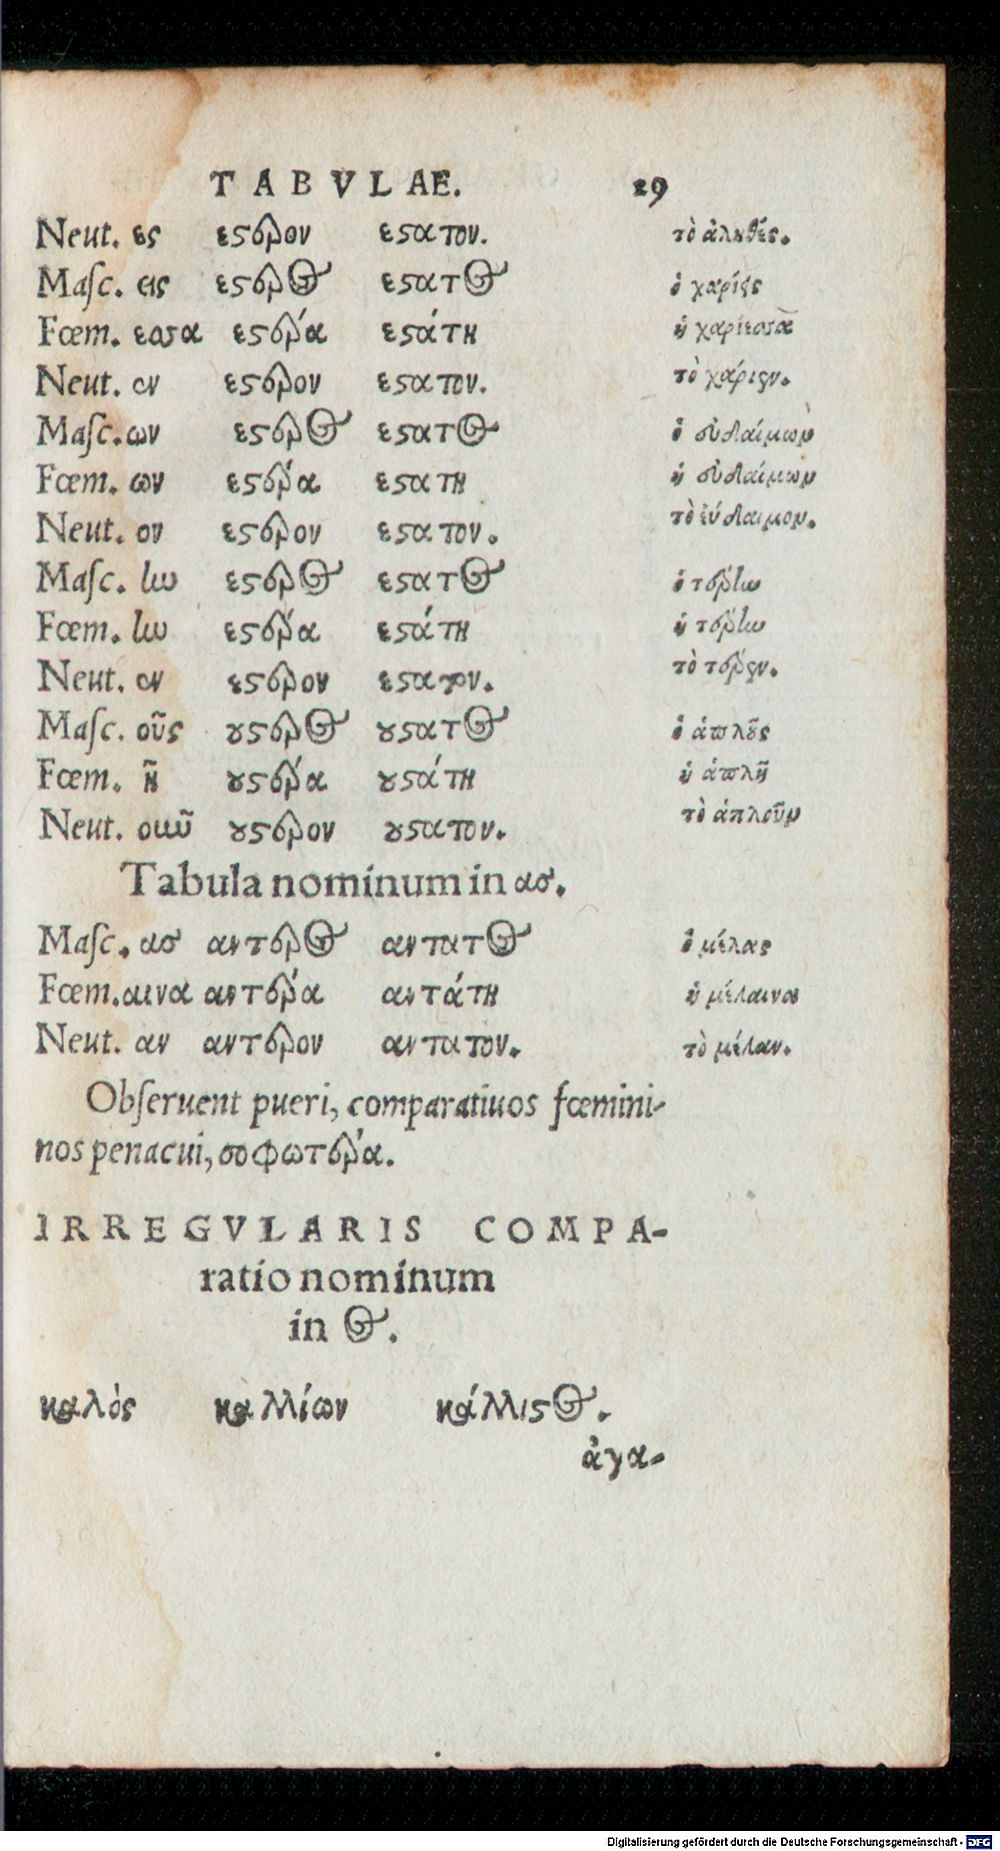 TABVLAE. 29
Neut. ες εϛερον εϛατον. τὸ ἀληθές.
Maſc. εις εϛερος εϛατος ὁ χαρίεις
Fœm. εσσα εϛερά εϛάτη ἡ χαρίεσσα
Neut. εν εϛερον εϛατον. τὸ χαρίεν.
Maſc. ων εϛερος εϛατος ὁ εὐδαίμων
Fœm. ων εϛερά εϛατη ἡ εὐδαίμων
Neut. ον εϛερον εϛατον. τὸ εύδαιμον.
Maſc. ην εϛερος εϛατος ὁ τέρην
Fœm. ην εϛερά εϛάτη ἡ τέρην
Neut. εν εϛερον εϛατον. τὸ τέρεν.
Maſc. οῦς ουϛερος ουϛατος ὁ ἁπλοῦς
Fœm. ῆ ουϛερά ουϛάτη ἡ ἁπλῆ
Neut. ουῦ ουϛερον ουϛατον. τὸ ἁπλοῦν
Tabula nominum in ας.
Maſc. ας αντερος αντατος ὁ μέλας
Fœm. αινα αντερά αντάτη ἡ μέλαινα
Neut. αν αντερον αντατον. τὸ μέλαν.
Obſeruent pueri, comparatiuos fœmini-
nos penacui, σοφωτερά.
IRREGVLARIS COMPA-
ratio nominum
in ος.
καλὸς καλλίων κάλλιϛος.
ἀγα-
Digitalisierung gefördert durch die Deutsche Forschungsgemeinschaft - DFG